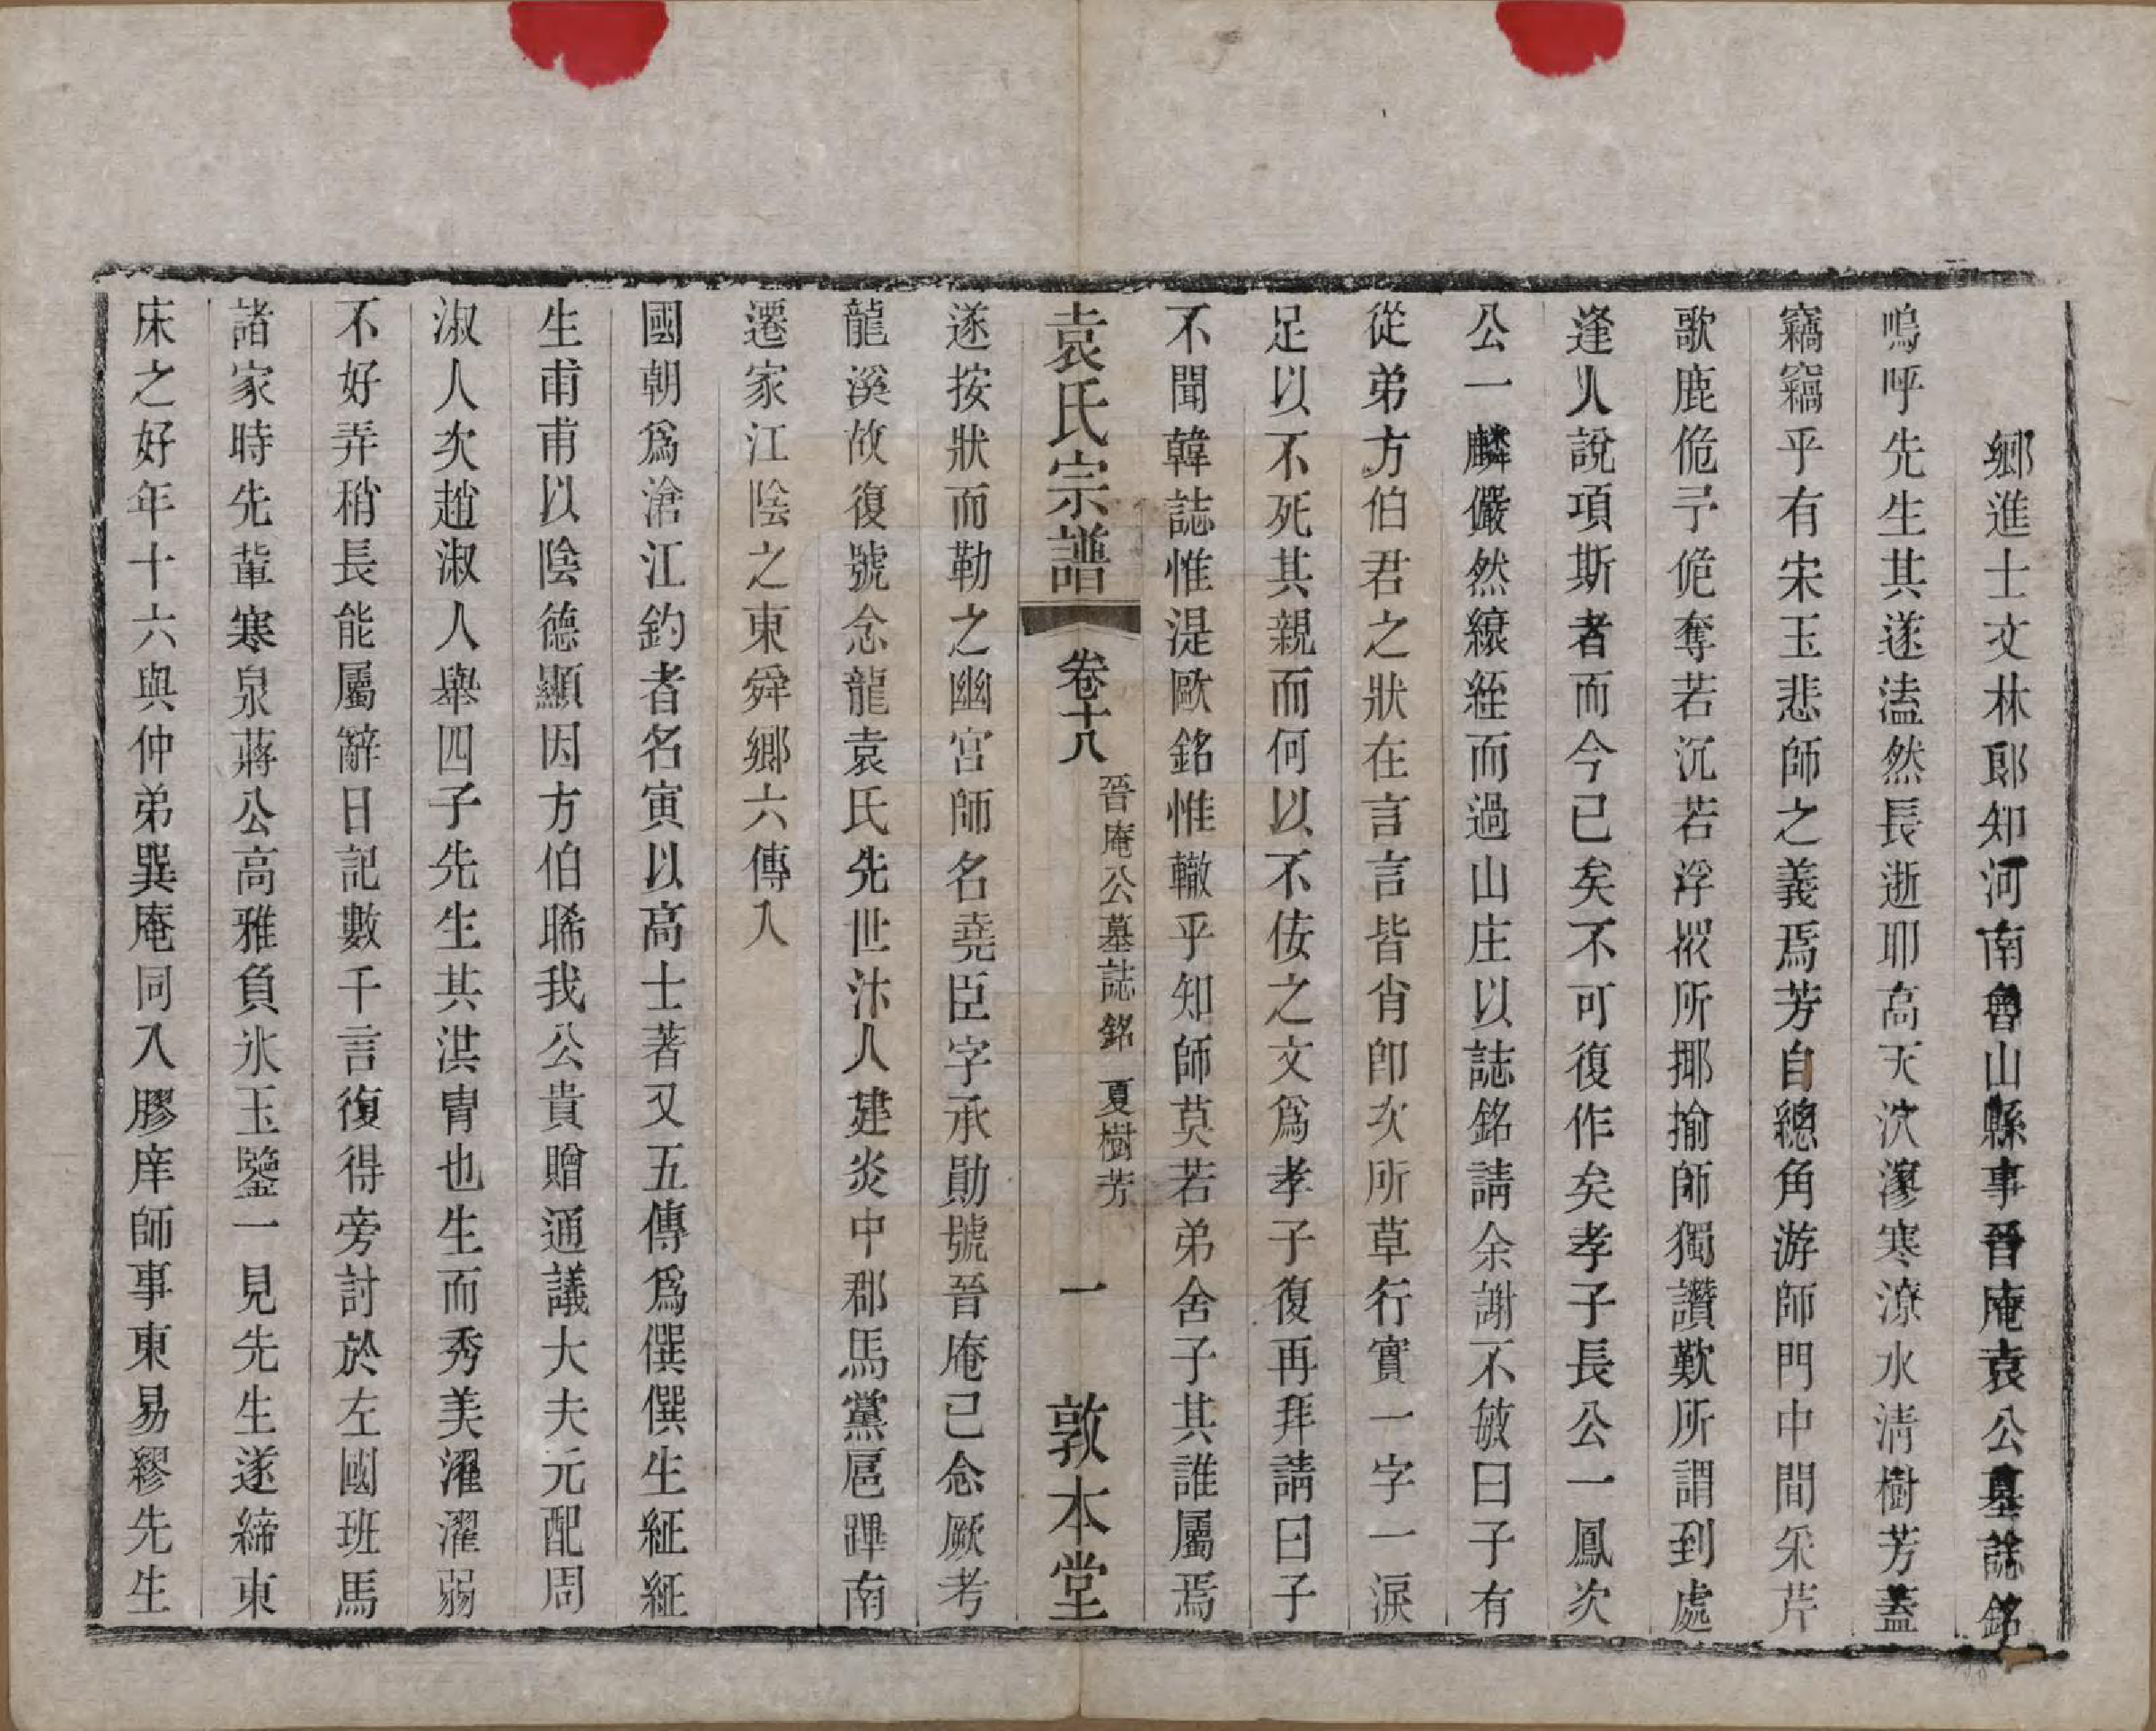 鄉進士文林郎知河南魯山縣事晉庵袁公墓誌銘
嗚呼先生其遂溘然長逝耶高天泬漻寒潦水清樹芳蓋
竊竊乎有宋玉悲師之義焉芳自總角游師門中間采芹
歌鹿佹予佹奪若沉若浮撚所揶揄師獨讚歎所謂到處
逢人說項斯者而今已矣不可復作矣孝子長公一鳳次
公一麟儼然縗絰而過山庄以誌銘請余謝不敏曰子有
從弟方伯君之狀在言言皆肖卽次所草行實一字一淚
足以不死其親而何以不佞之文爲孝子復再拜請曰子
不聞韓誌惟湜歐銘惟轍乎知師莫若弟舍子其誰屬焉
袁氏宗譜 卷十八 晉庵公墓誌銘 夏樹芳 一 敦本堂
遂按狀而勒之幽宮師名堯臣字承勛號晉庵已念厥考
龍溪故復號念龍袁氏先世汴人建炎中郡馬黨扈蹕南
遷家江陰之東舜鄉六傳入
國朝爲滄江釣者名寅以高士著又五傳爲僎僎生絍絍
生甫甫以陰德顯因方伯晞我公貴贈通議大夫元配周
淑人次趙淑人舉四子先生其洪冑也生而秀美濯濯弱
不好弄稍長能屬辭日記數千言復得旁討於左國班馬
諸家時先輩寒泉蔣公高雅負氷玉鑒一見先生遂締東
床之好年十六與仲弟巽庵同入膠庠師事東昜繆先生